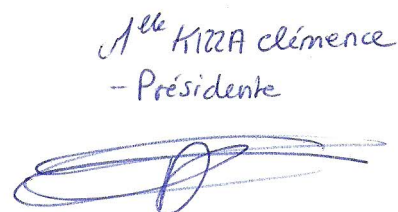 Mlle KIZZA clémence
- Présidente